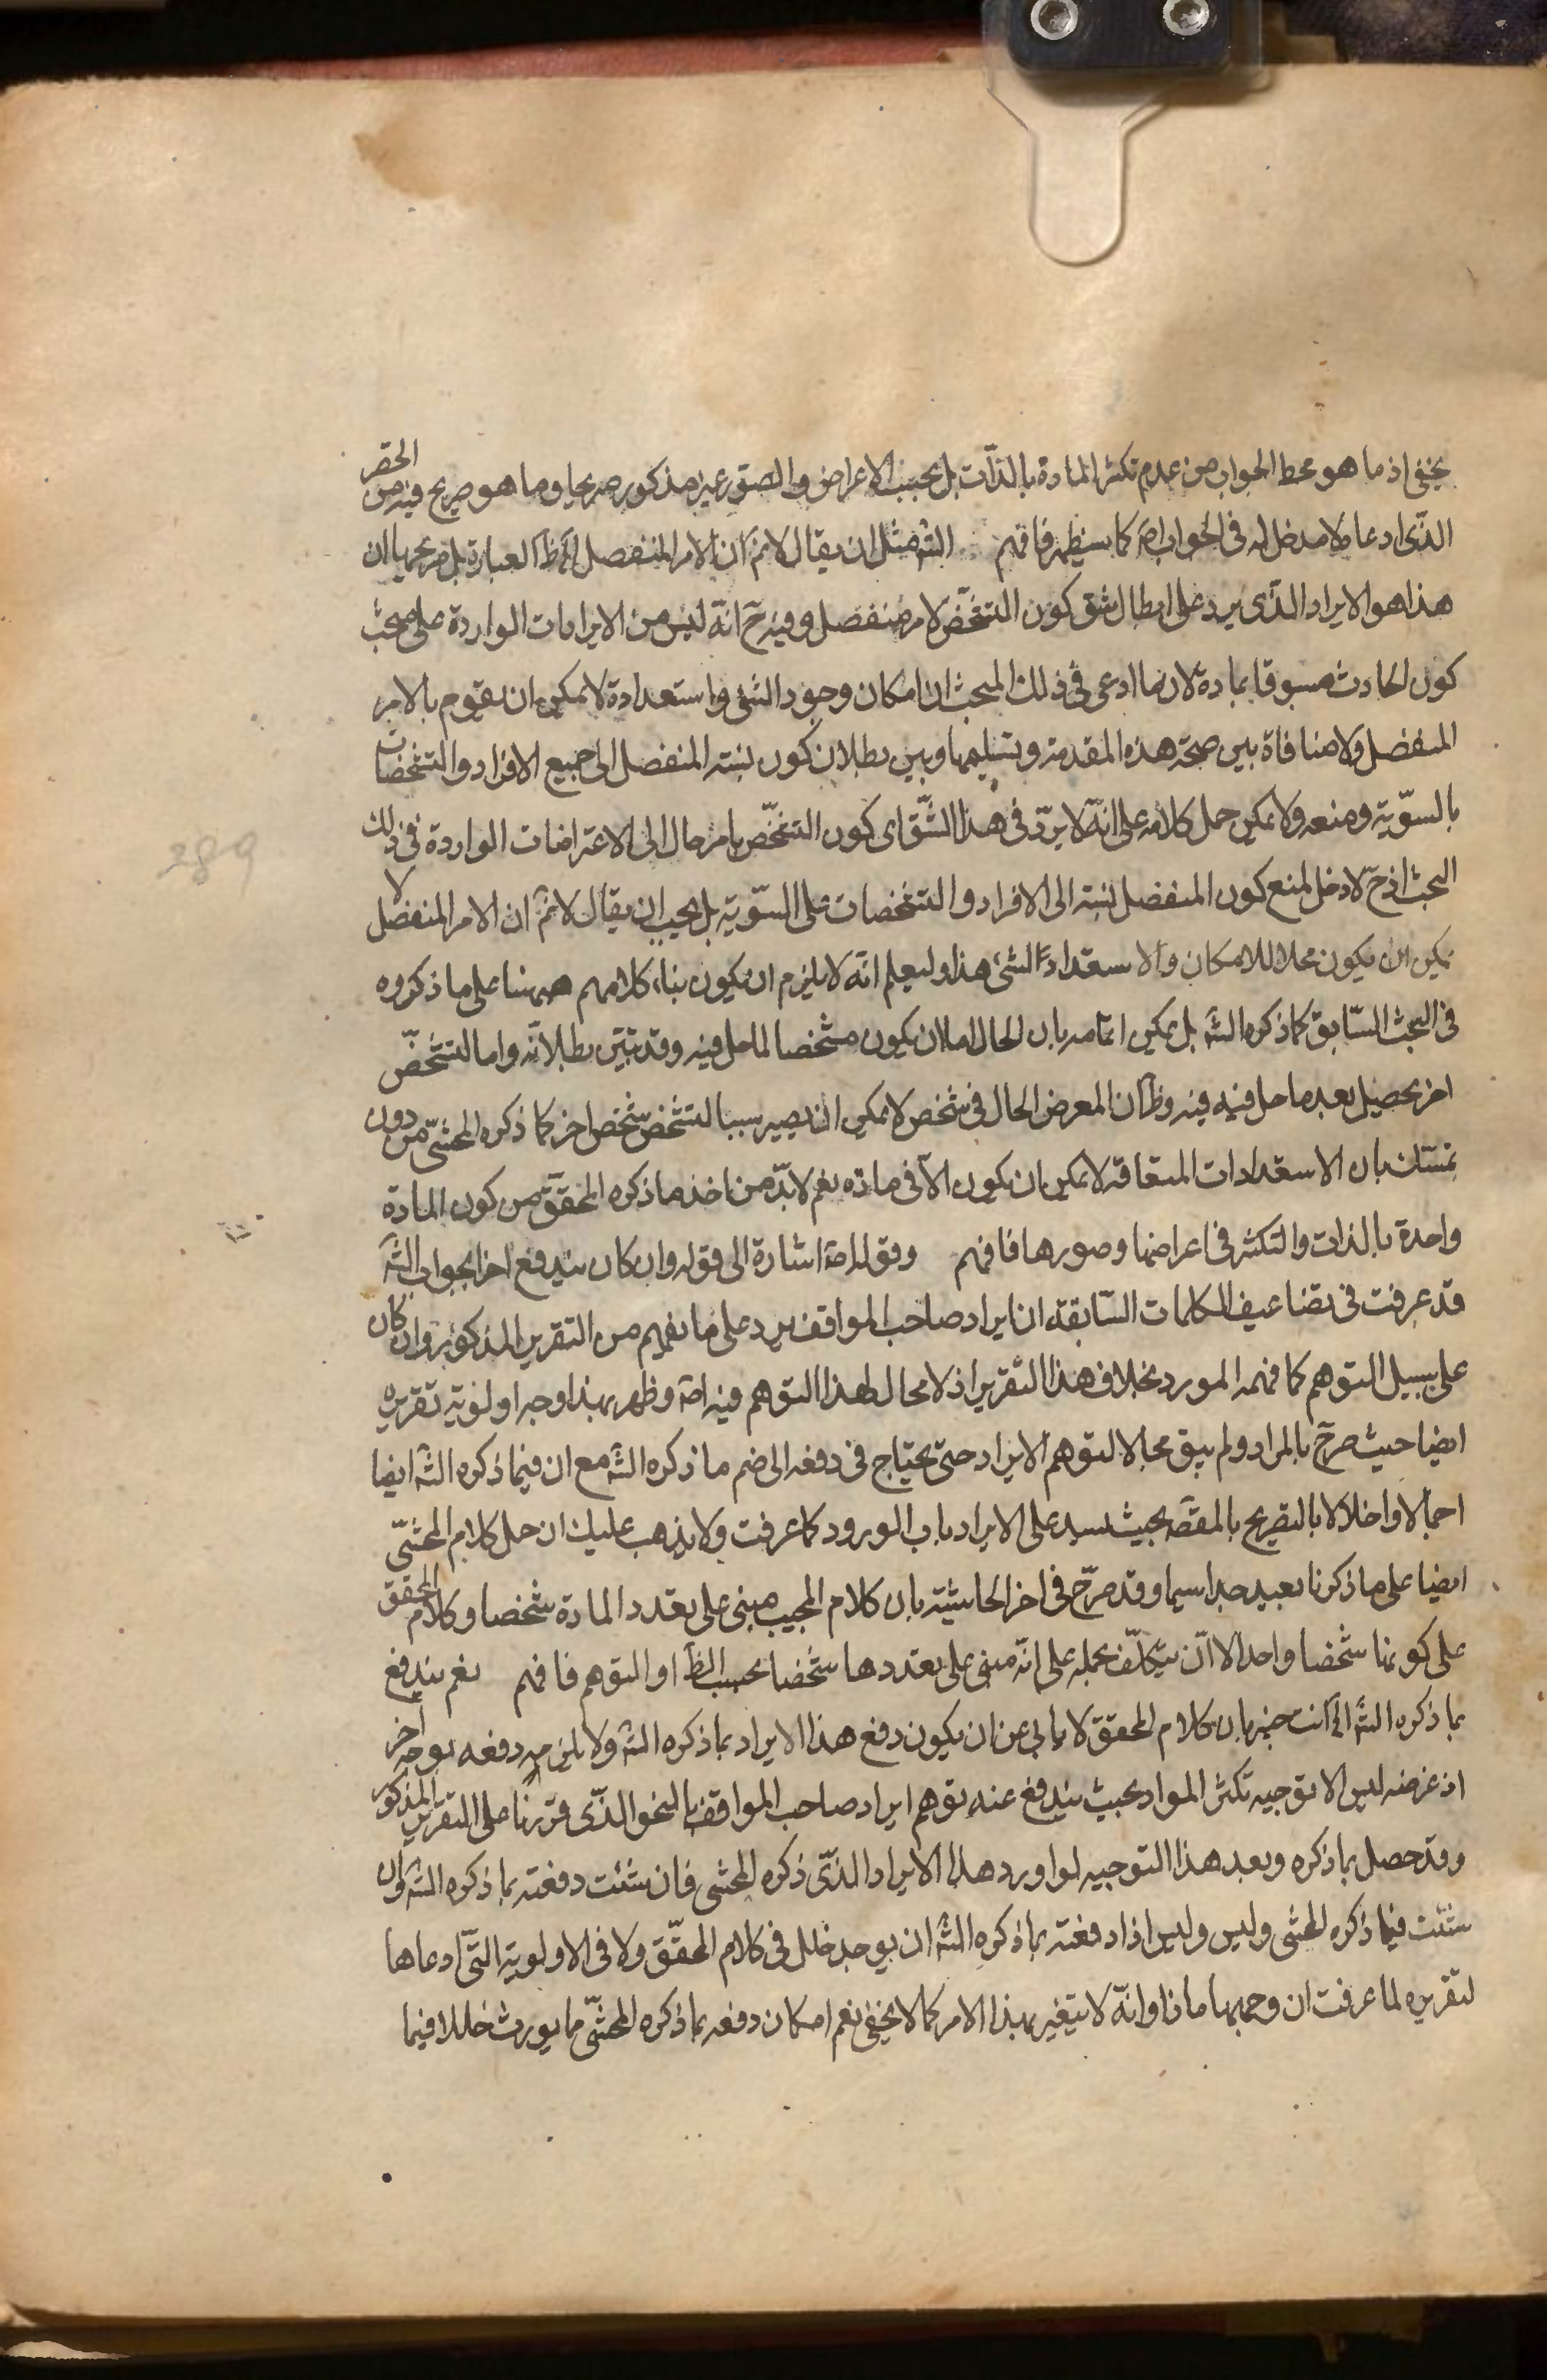 يخفى اذ ما هو محط الجواب من عدم تكثر المادة بالذات بل بحسب الاعراض والصور غير مذكور صريحا وما هو صريح فيه من الحقر
الذى ادعاه لا مدخل له فى الجواب اصَ كما سيظهر فافهم الشَه مثل ان يقال لانمَ ان الامر المنفصل الخ ظاَ العبارة بل صريحها ان
هذا هو الايراد الذى يرد على ابطال شق كون التشخّص لامر منفصل وفيه حَ انّه ليس من الايرادات الواردة على مبحث
كون الحادث مسبوقا بمادة لان ما ادعى فى ذلك المبحث ان امكان وجود الشئ واستعداده لا يمكن ان يقوم بالامر
المنفصل ولا منافاة بين صحة هذه المقدمة وتسليمها وبين بطلان كون نسبته المنفصل الى جميع الافراد والتشخصات
بالسوّية ومنعه ولا يمكن حمل كلامه على انّه لا يردّ فى هذا الشّق اى كون التشخّص بامر حال الى الاعتراضات الواردة فى ذلك
البحث اذ حَ لا دخل لمنع كون المنفصل نسبته الى الافراد والتشخصات على السّوية بل يجب ان يقال لانمَ ان الامر المنفصل لا
يمكن ان يكون محلا للامكان والاستعداد الشئ هذا وليعلم انّه لا يلزم ان يكون بناء كلامهم ههنا على ما ذكروه
فى البحث السّابق كما ذكره الشَه بل يمكن اتمامه بان الحال اما ان يكون مشخصا لما حل فيه وقد تبيّن بطلانه واما لتشخّص
اخر يحصل بعد ما حل فيه فيه وظَ ان المعرض الحال فى شخص لا يمكن ان يصير سببا لتشخص شخص اخر كما ذكره المحشّى من دون
تمسّك بان الاستعدادات المتعاقبة لا يمكن ان يكون الّا فى مادة نعم لا بدّ من اخذ ما ذكره المحقّق من كون المادة
واحدة بالذات والتكثر فى اعراضها وصورها فافهم وقوله اصَ اشارة الى قوله وان كان يندفع اخر الجواب الشَه
قد عرفت فى تضاعيف الكلمات السّابقة ان ايراد صاحب المواقف يرد على ما يفهم من التقرير المذكور وان كان
على سبيل التوهم كما فهمه المورد بخلاف هذا التقرير اذ لا مجال لهذا التوهم فيه اصَ وظهر بهذا وجه اولوية تقريره
ايضا حيث صرّح بالمراد ولم يبق مجالا لتوهم الايراد حتى يحتاج فى دفعه الى ضم ما ذكره الشَه مع ان فيما ذكره الشَه ايضا
اجمالا واخلالا بالتصريح بالمقصَ بحيث يسد على الايراد باب الورود كما عرفت ولا يذهب عليك ان حمل كلام المحشّى
ايضا على ما ذكرنا بعيد جدا سيما وقد صرّح فى اخر الحاشية بان كلام المجيب مبنى على تعدد المادة شخصا وكلام المحقق
على كونها شخصا واحدا الا ان يتكلّف بحمله على انّه مبنى على تعددها شخصا بحسب الظَ او التوهم فافهم نعم يندفع
بما ذكره الشَه الخ انت خبير بان كلام المحقق لا يابى عن ان يكون دفع هذا الايراد بما ذكره الشَه ولا يلزم دفعه بوجه آخر
اذ غرضه ليس الا توجيه تكثر المواد بحيث يندفع عنه توهم ايراد صاحب المواقف بالنحو الذّى قررنا على التقرير المذكور
وقد حصل بما ذكره وبعد هذا التوجيه لو اورد هذا الايراد الذّى ذكره المحشى فان شئت دفعته بما ذكره الشَه وان
شئت فيما ذكره المحشى وليس وليس اذا دفعته بما ذكره الشَه ان يوجد خلل فى كلام المحقّق ولا فى الاولوية التّى ادعاها
لتقريره لما عرفت ان وجهها ماذا وانّه لا يتغير بهذا الامر كما لا يخفى نعم امكان دفعه بما ذكره المحشّى ما يورث خللا فيما
289